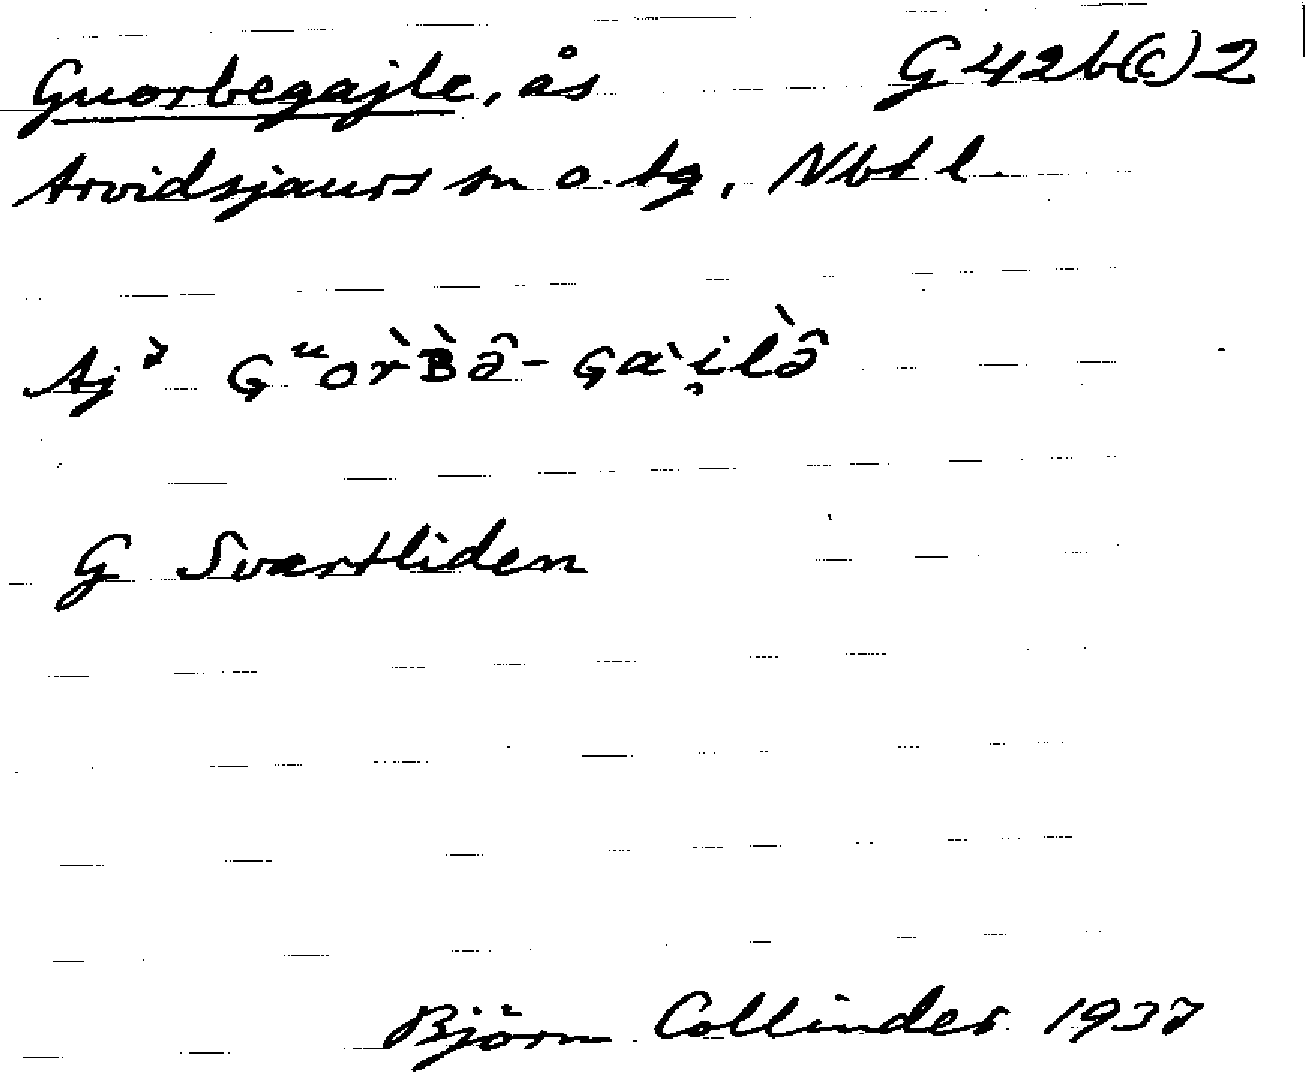 Guorbegajle, ås G 42 b(c) 2
Arvidsjaurs sn o. tg, Nbt l.
Aj² GᵘorˋBˋə̂- Gaˋi̯lˋə̂
G Svartliden
Björn Collinder 1937